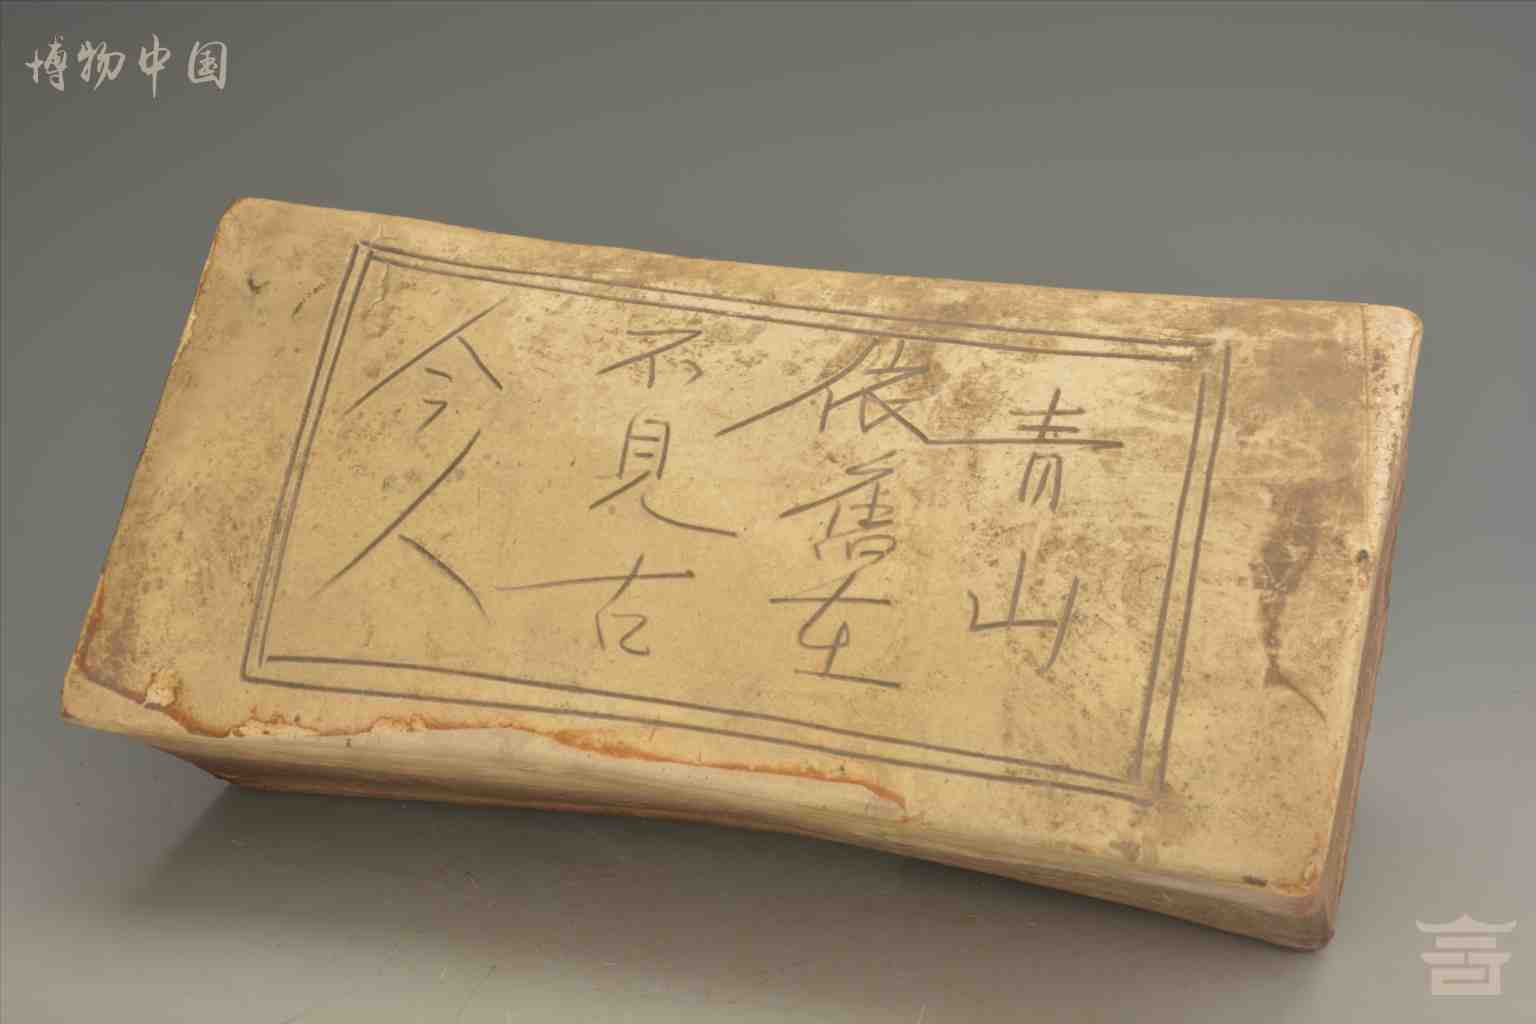 博物中国
青山
依舊在
不見古
今人